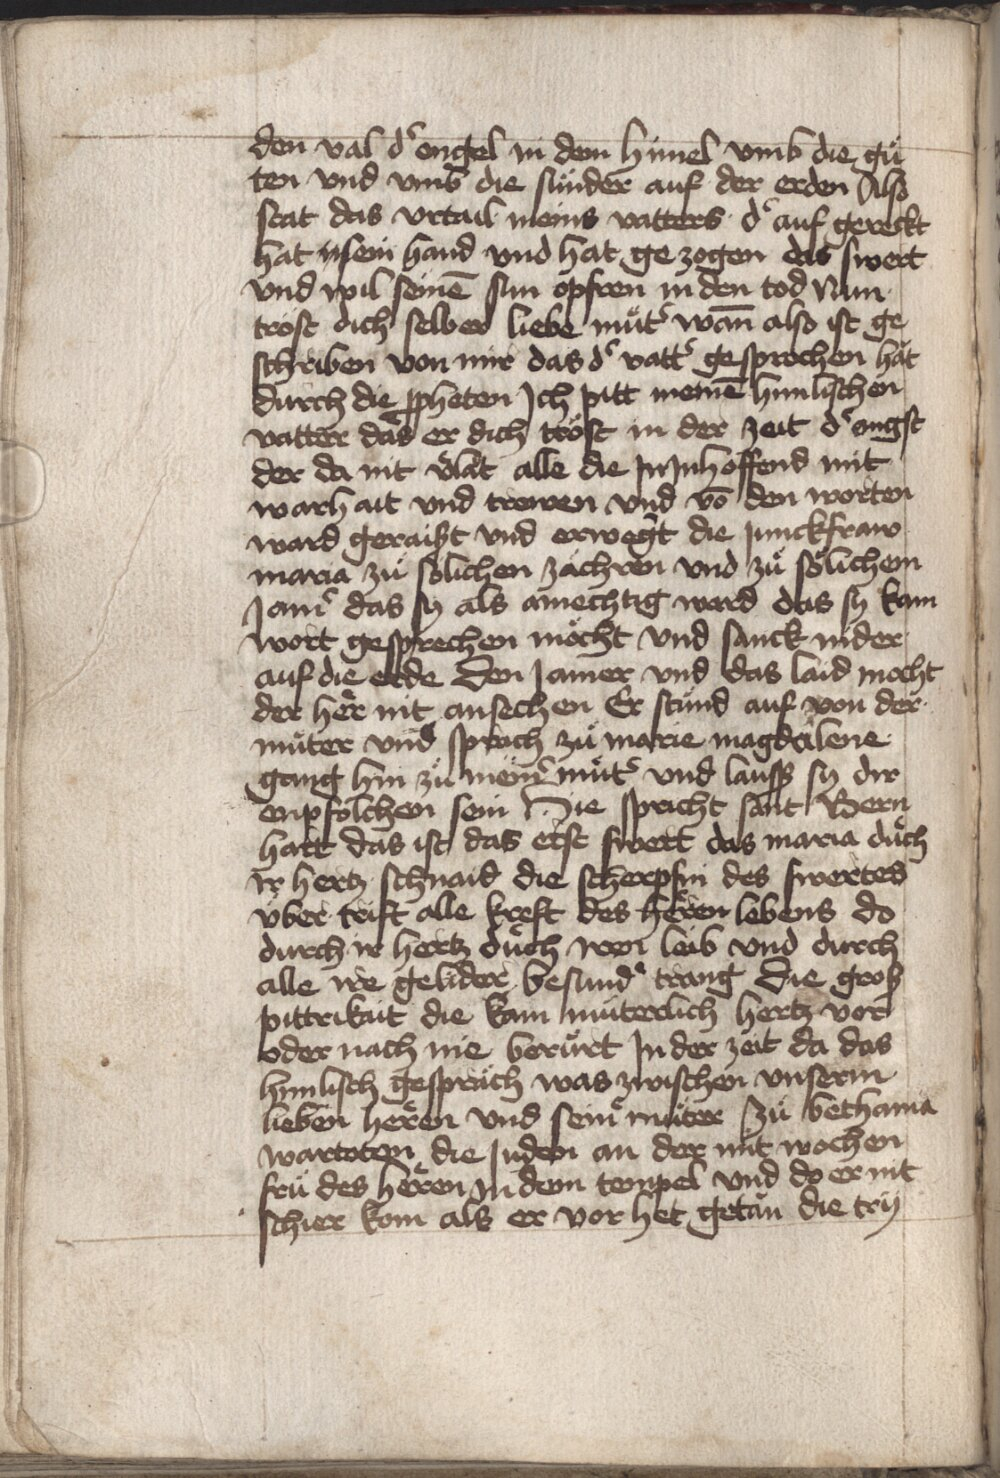 den val dˢ engel in dem himel vmb die guͤ
ten vnd vmb die suͤnder auf der erden Also
stat das vrtail meins vatters dˢ auf gereckt
hat sein hand vnd hat ge zogen das swert
vnd wil seinē sun opfren in den tod Nun
troͤst dich selber liebe muͦtˢ wan̄ also ist ge
schriben von mir das dˢ vattˢ gesprochen hat
durch die ꝓpheten Ich pitt meinē himlischen
vatter das er dich troͤst in der zeit dˢ angst
der da nit v̄lat alle die In In hoffend mit
warhait vnd trewen vnd vō den worten
ward geraißt vnd erwegt die junckfraw
maria zuͦ soͤlichen zaͤchren vnd zuͦ soͤlichem
Jamˢ das sy als amechtig ward das sy kain
wort gesprechen moͤcht vnd sanck nider
auf die erde Den Jamer vnd das laid mocht
der her̄ nit ansechen Er stuͦnd auf von der
muͦter vnd sprach zuͦ marie magdalene
gang hin zuͦ meinˢ muͦtˢ vnd lauß sy dir
enpfolchen sein Hie spricht sant Bern
hart das ist das erst swert das maria duͤch
ir hertz schnaid die scherpfin des swertes
vͤber trift alle kreft des her̄en lebens do
durch ir hertz duͤch iren leib vnd durch
alle ire gelider besundˢ trang Die groß
pittrikait die kain muͤterlich hertz vor
oder nach nie beruͤrt In der zeit da das
himlisch gespraͤch was zwischen vnserm
lieben her̄en vnd seinˢ muͦter zuͦ bethania
wartoten die juden an der mit wochen
fruͤ des her̄en in dem tempel vnd do er nit
schier kom als er vor het getaͮn die try